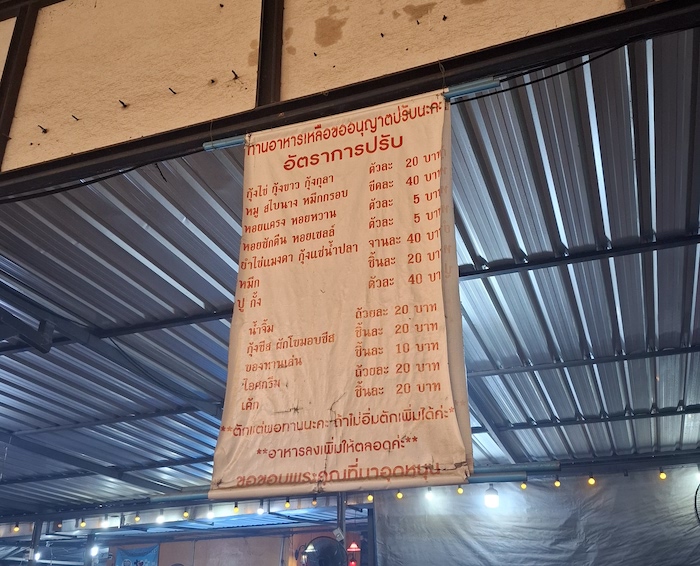 ทานอาหารเหลือขออนุญาตปรับนะคะ
อัตราการปรับ
กุ้งไข่ กุ้งขาว กุ้งกุลา ตัวละ 20 บาท
หมู สไบนาง หมึกกรอบ ขีดละ 40 บาท
หอยแครง หอยหวาน ตัวละ 5 บาท
หอยชักตีน หอยเชลล์ ตัวละ 5 บาท
ยำไข่แมงดา กุ้งแช่น้ำปลา จานละ 40 บาท
หมึก ชิ้นละ 20 บาท
ปู กั้ง ตัวละ 40 บาท
น้ำจิ้ม ถ้วยละ 20 บาท
กุ้งชีส ผักโขมอบชีส ชิ้นละ 20 บาท
ของทานเล่น ชิ้นละ 10 บาท
ไอศกรีม ถ้วยละ 20 บาท
เค้ก ชิ้นละ 20 บาท
**ตักแต่พอทานนะคะ ถ้าไม่อิ่มตักเพิ่มได้ค่ะ*
**อาหารลงเพิ่มให้ตลอดค่ะ**
ขอขอบพระคุณที่มาอุดหนุน